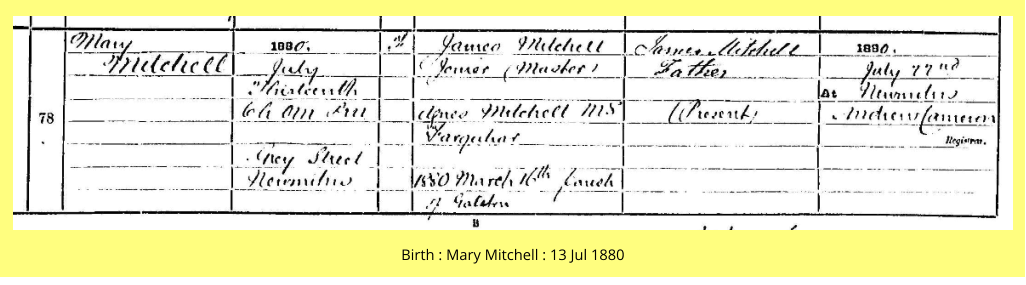 78
Mary
Mitchell
1880.
July
Thirteenth
6h 0m P.M.
Grey Street
Newmilns
F
James Mitchell
Joiner (Master)
Agnes Mitchell M.S.
Farquhar
1880 March 16th Parish
of Galston
James Mitchell
Father
(Present)
1880.
July 22nd
At Newmilns
Andrew Cameron
Registrar.
B
Birth : Mary Mitchell : 13 Jul 1880